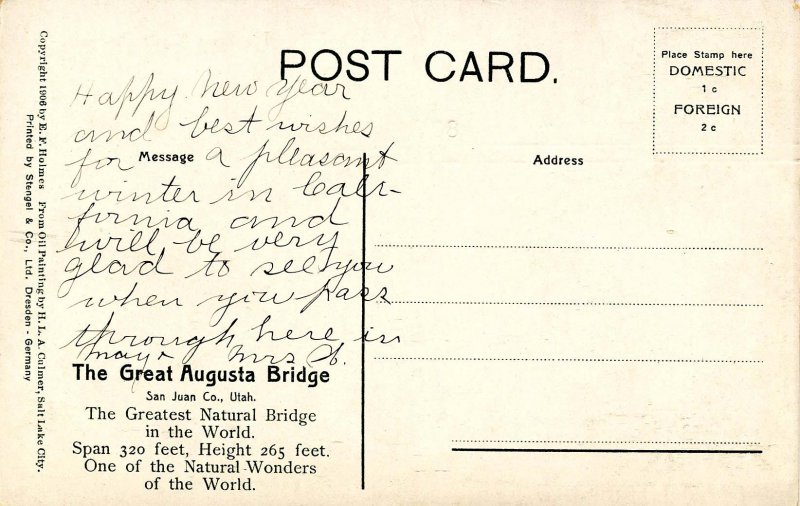 POST CARD.
Place Stamp here
DOMESTIC
1 c
FOREIGN
2 c
Message
Address
Happy New Year
and best wishes
for a pleasant
winter in Cali-
fornia and
will be very
glad to see you
when you pass
through here in
May. Mrs
The Great Augusta Bridge
San Juan Co., Utah.
The Greatest Natural Bridge
in the World.
Span 320 feet, Height 265 feet.
One of the Natural Wonders
of the World.
Copyright 1906 by E. F. Holmes From Oil Painting by H. L. A. Culmer, Salt Lake City.
Printed by Stengel & Co., Ltd. Dresden - Germany